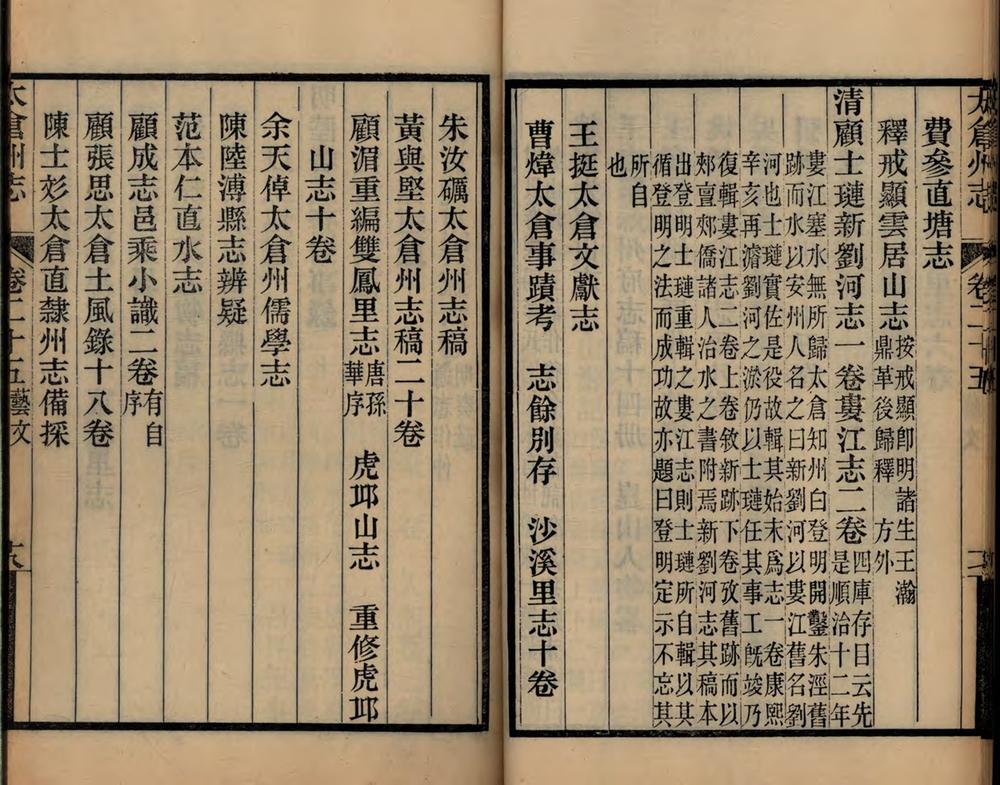 太倉州志 卷二十五
費參直塘志
釋戒顯雲居山志 按戒顯卽明諸生王瀚鼎革後歸釋 方外
清顧士璉新劉河志一卷婁江志二卷 四庫存目云先是順治十二年
婁江塞水無所歸太倉知州白登明開鑿朱涇舊
跡而水以安州人名之曰新劉河以婁江舊名劉
河也士璉實佐是役故輯其始末爲志一卷康熙
辛亥再濬劉河之淤仍以士璉任其事工旣竣乃
復輯婁江志二卷上卷敘新跡下卷攷舊跡而以
郟亶郟僑諸人治水之書附焉新劉河志其稿本
出登明士璉重輯之婁江志則士璉所自輯以其
循登明之法而成功故亦題曰登明定示不忘其
所自
也
王挺太倉文獻志
曹煒太倉事蹟考 志餘別存 沙溪里志十卷
朱汝礪太倉州志稿
黃與堅太倉州志稿二十卷
顧湄重編雙鳳里志 唐孫華序 虎邱山志 重修虎邱
山志十卷
余天倬太倉州儒學志
陳陸溥縣志辨疑
范本仁直水志
顧成志邑乘小識二卷 有自序
顧張思太倉土風錄十八卷
陳士彣太倉直隸州志備採
太倉州志 卷二十五藝文 十八